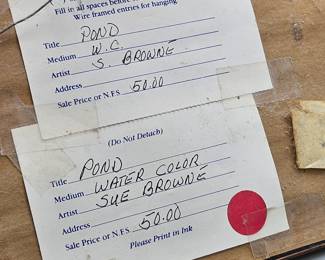 Fill in all spaces before
Wire framed entries for hanging
Title POND
Medium W.C.
Artist S. BROWNE
Address
Sale Price or N.F.S 50.00
(Do Not Detach)
Title POND
Medium WATER COLOR
Artist SUE BROWNE
Address
Sale Price or N.F.S. 50.00
Please Print in Ink